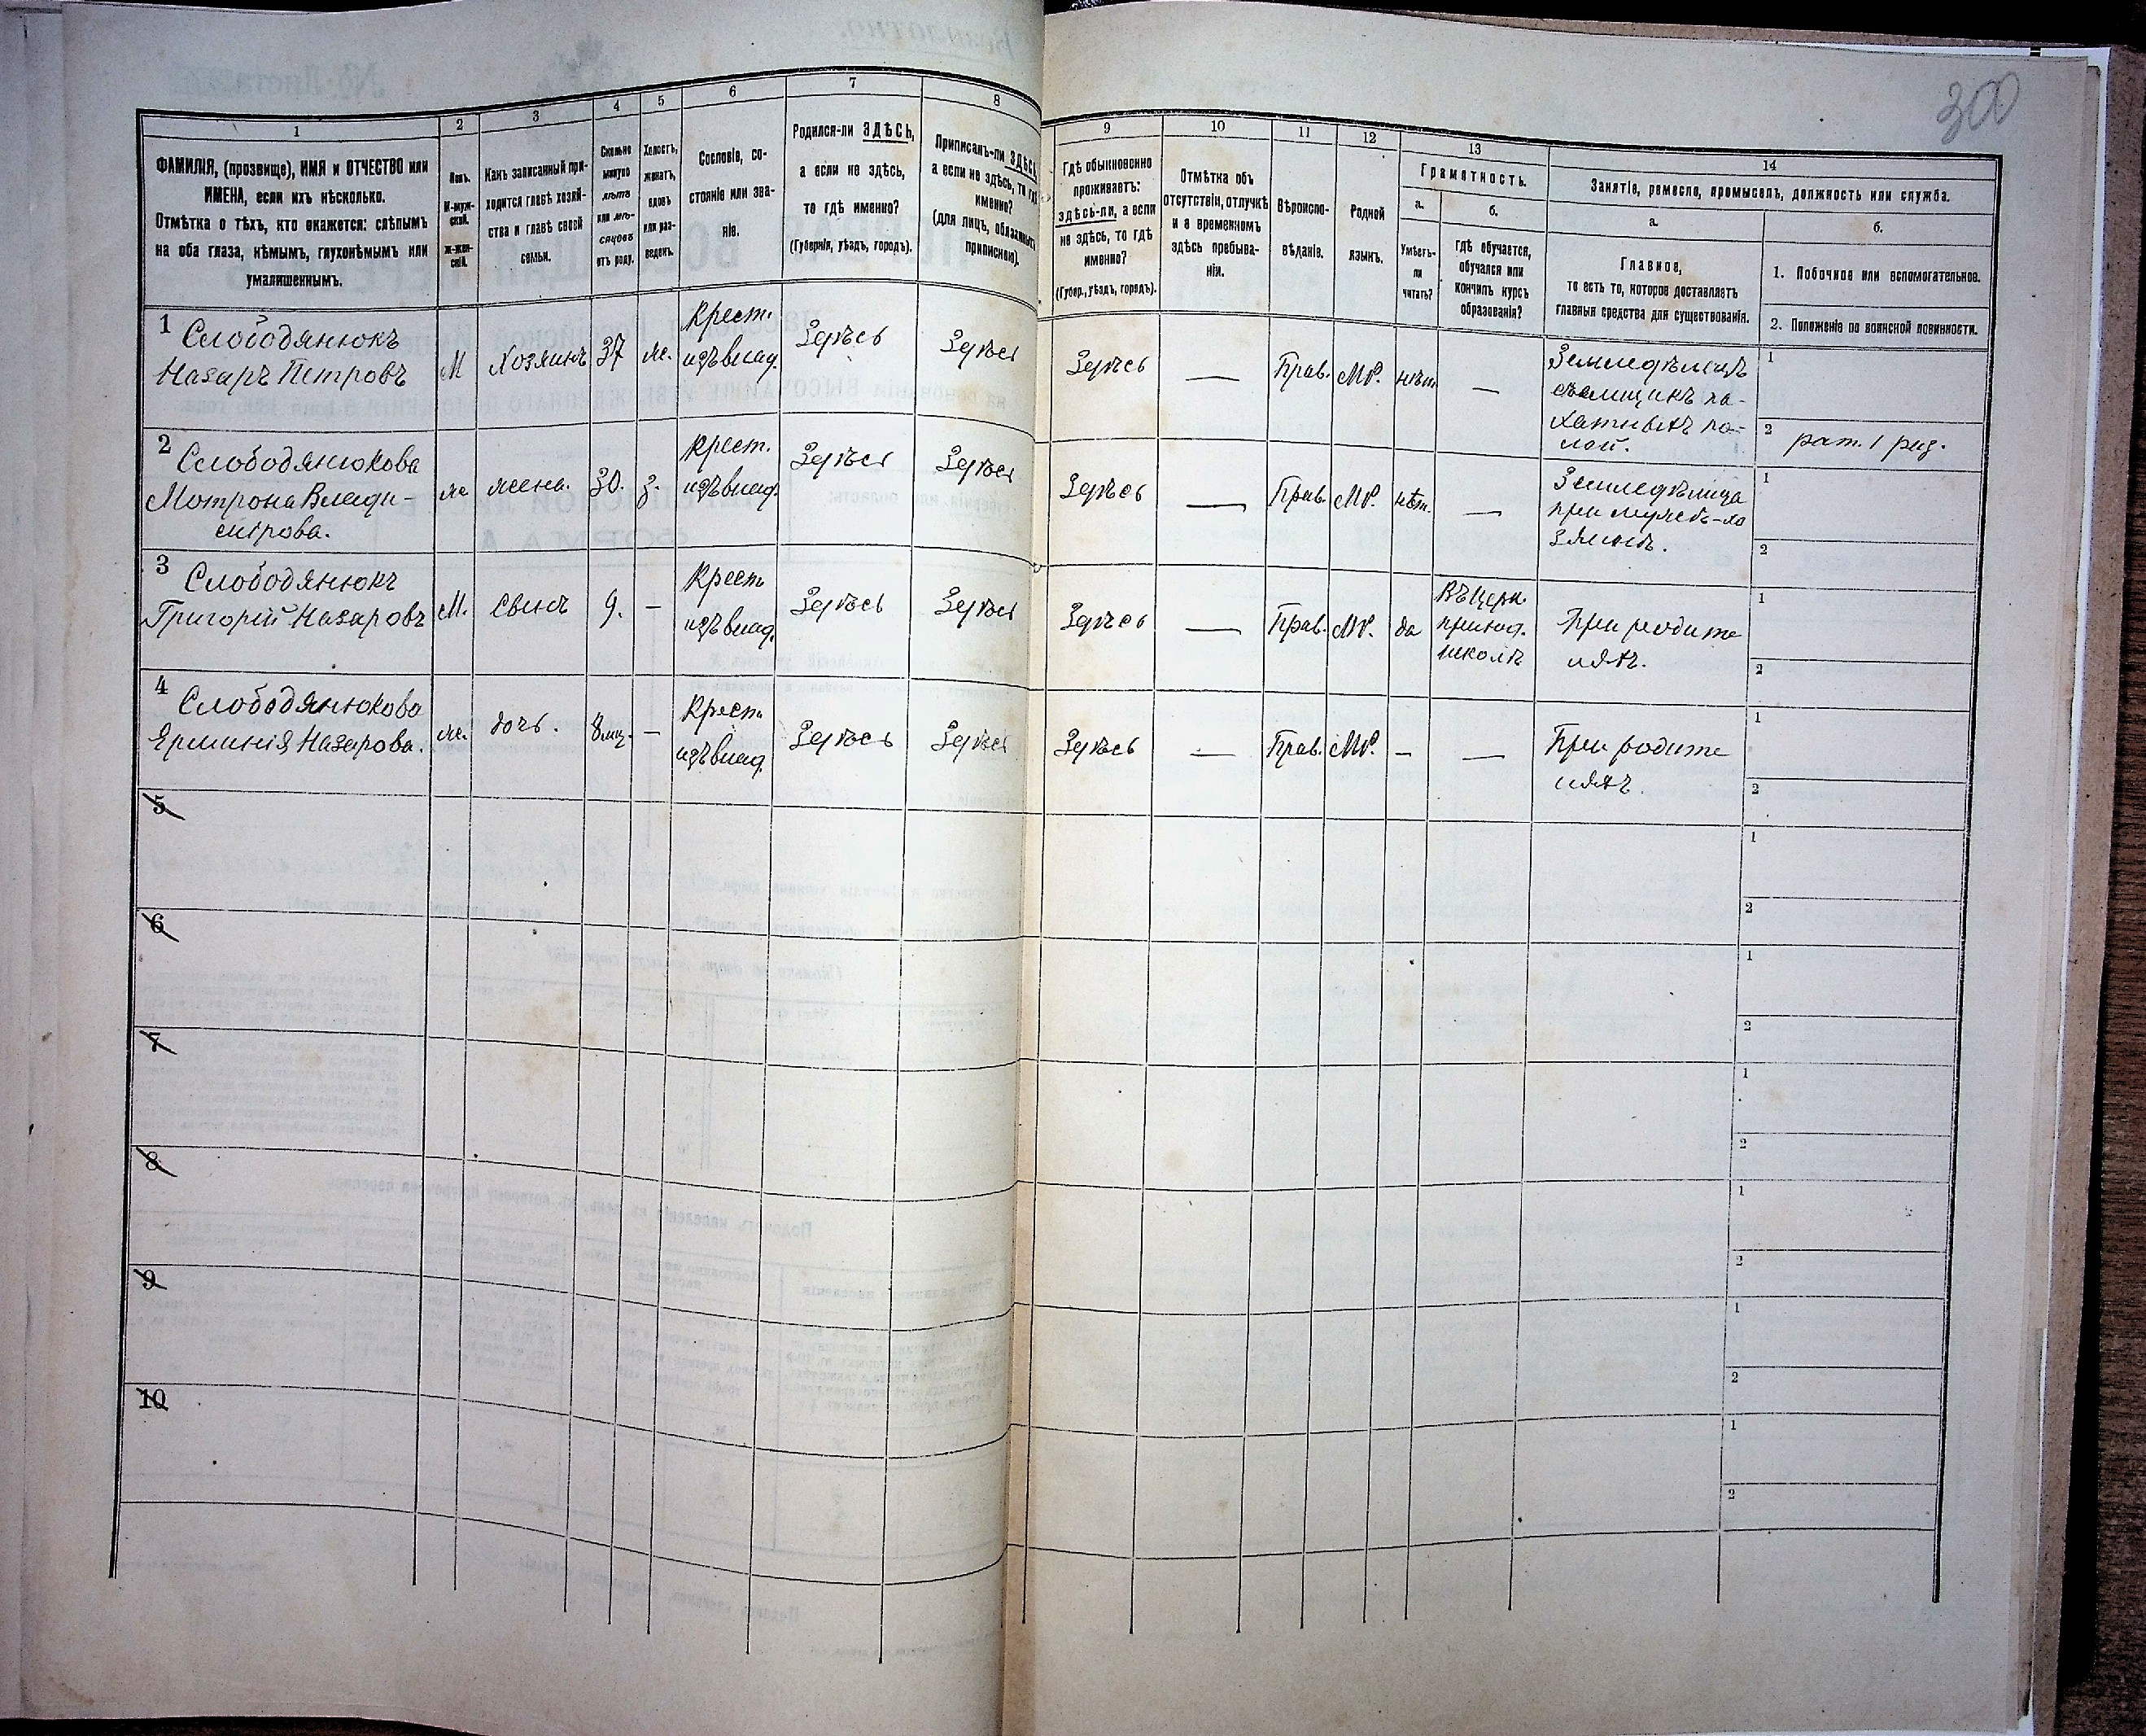 300
1
2
3
4
5
6
7
8
9
10
11
12
13
14
ФАМИЛІЯ, (прозвище), ИМЯ и ОТЧЕСТВО или
ИМЕНА, если ихъ нѣсколько.
Отмѣтка о тѣхъ, кто окажется: слѣпымъ
на оба глаза, нѣмымъ, глухонѣмымъ или
умалишеннымъ.
Полъ.
М-муж-
ской.
Ж-жен-
скій.
Какъ записанный при-
ходится главѣ хозяй-
ства и главѣ своей
семьи.
Сколько
минуло
лѣтъ
или мѣ-
сяцовъ
отъ роду.
Холостъ,
женатъ,
вдовъ
или раз-
веденъ.
Сословіе, со-
стояніе или зва-
ніе.
Родился-ли ЗДѢСЬ,
а если не здѣсь,
то гдѣ именно?
(Губернія, уѣздъ, городъ).
Приписанъ-ли ЗДѢСЬ,
а если не здѣсь, то гдѣ
именно?
(для лицъ, обязанныхъ
припискою).
Гдѣ обыкновенно
проживаетъ:
здѣсь-ли, а если
не здѣсь, то гдѣ
именно?
(Губер., уѣздъ, городъ).
Отмѣтка объ
отсутствіи, отлучкѣ
и о временномъ
здѣсь пребыва-
ніи.
Вѣроиспо-
вѣданіе.
Родной
языкъ.
Грамотность.
а.
б.
Умѣетъ-
ли
читать?
Гдѣ обучается,
обучался или
кончилъ курсъ
образованія?
Занятіе, ремесло, промыселъ, должность или служба.
а.
б.
Главное,
то есть то, которое доставляетъ
главныя средства для существованія.
1. Побочное или вспомогательное.
2. Положеніе по воинской повинности.
1
Слободянюкъ
Назаръ Петровъ
М
Хозяинъ
37
ж.
Крест.
изъ влад.
Здѣсь
Здѣсь
Здѣсь
—
Прав.
МР.
нѣт
—
Земледѣлецъ
съемщикъ па-
хатныхъ по-
лей.
1
2 рат. 1 раз.
2
Слободянюкова
Мотрона Влади-
мірова.
ж
жена.
30.
з.
Крест.
изъ влад.
Здѣсь
Здѣсь
Здѣсь
—
Прав.
МР.
нѣт.
—
Земледѣлица
при мужѣ-хо
зяинѣ.
1
2
3
Слободянюкъ
Григорій Назаровъ
М.
Сынъ
9.
—
Крест
изъ влад.
Здѣсь
Здѣсь
Здѣсь
—
Прав.
МР.
да
Въ церк.
приход.
школѣ
При родите
ляхъ.
1
2
4
Слободянюкова
Ерминія Назарова.
ж.
дочь.
8 мц.
—
Крест
изъ влад.
Здѣсь
Здѣсь
Здѣсь
—
Прав.
МР.
—
—
При родите
ляхъ.
1
2
5
1
2
6
1
2
7
1
2
8
1
2
9
1
2
10
1
2